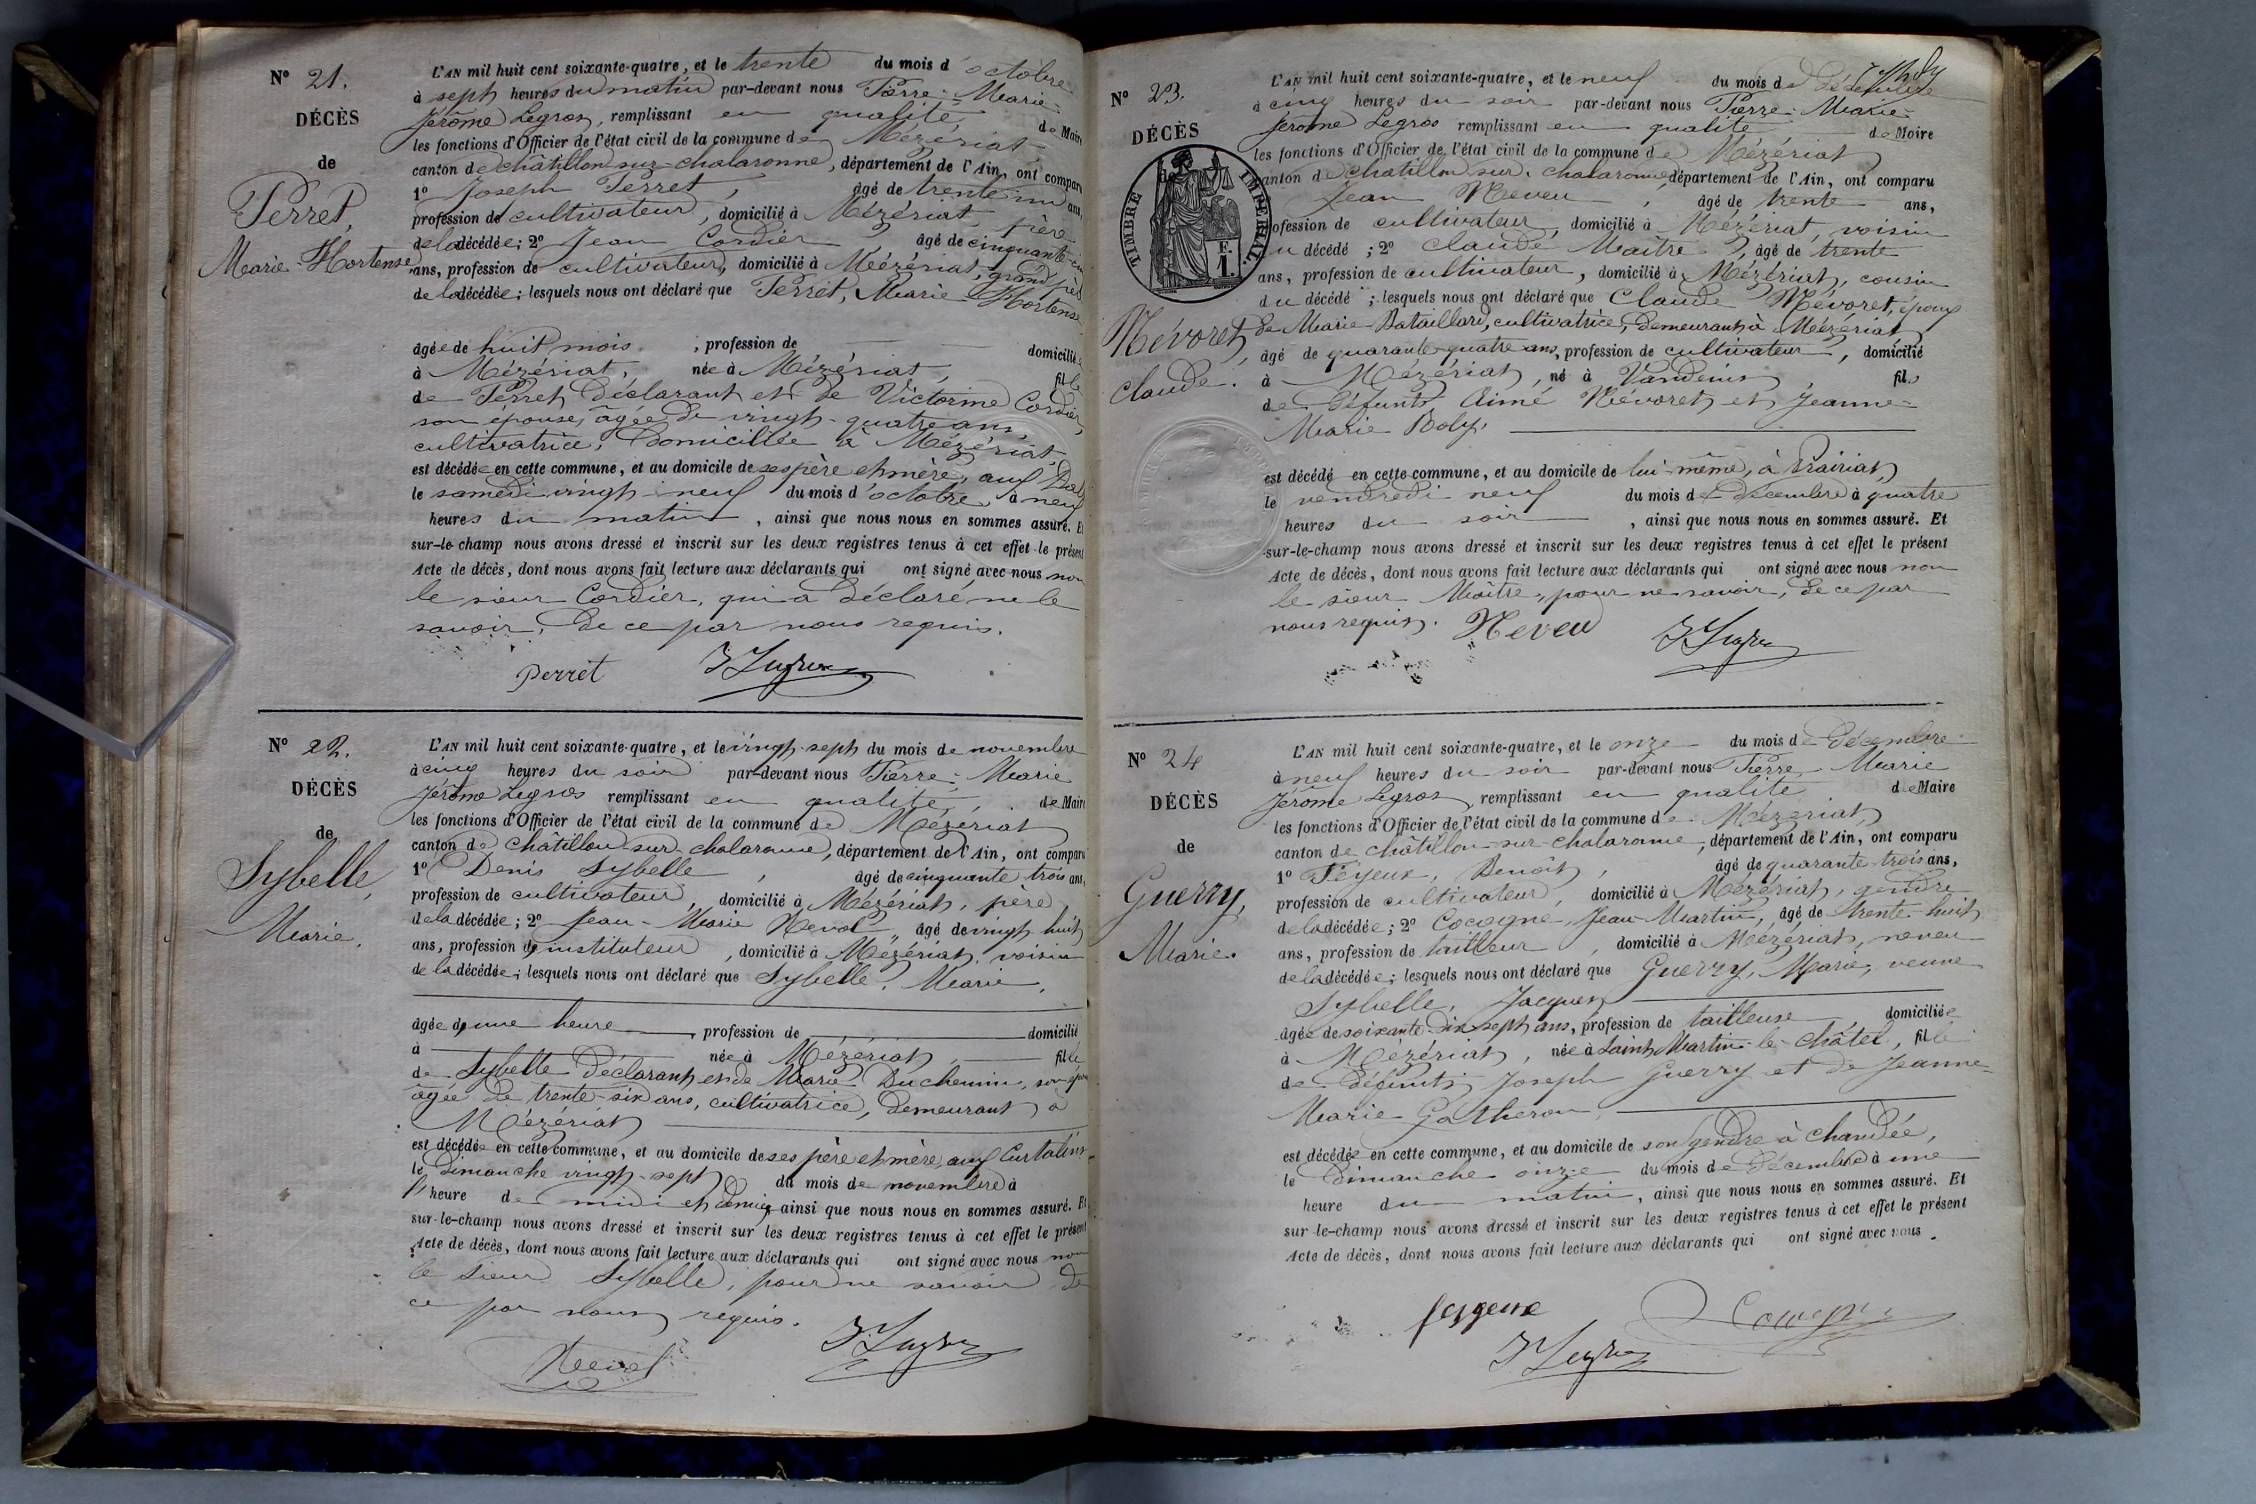 N° 21.
DÉCÈS
de
Perret,
Marie-Hortense
L'AN mil huit cent soixante-quatre, et le trente du mois d'octobre
à sept heures du matin par-devant nous Pierre-Marie-
Jérôme Legros, remplissant en qualité de Maire
les fonctions d'Officier de l'état civil de la commune de Mézériat
canton de châtillon-sur-chalaronne, département de l'Ain, ont comparu
1° Joseph Perret, âgé de trente-un ans,
profession de cultivateur, domicilié à Mézériat, père
de la décédée; 2° Jean Cordier, âgé de cinquante-cinq
ans, profession de cultivateur, domicilié à Mézériat, grand père
de la décédée; lesquels nous ont déclaré que Perret, Marie-Hortense
âgée de huit mois, profession de domiciliée
à Mézériat, née à Mézériat, fille
de Perret Déclarant et de Victorine Cordier,
son épouse, âgée de vingt-quatre ans,
cultivatrice, Domiciliée à Mézériat
est décédée en cette commune, et au domicile de ses père et mère, aux
le samedi vingt-neuf du mois d'octobre à neuf
heures du matin, ainsi que nous nous en sommes assuré. Et
sur-le-champ nous avons dressé et inscrit sur les deux registres tenus à cet effet le présent
Acte de décès, dont nous avons fait lecture aux déclarants qui ont signé avec nous non
le sieur Cordier, qui a déclaré ne le
savoir, de ce par nous requis.
Perret JLegros
N° 22.
DÉCÈS
de
Sybelle,
Marie.
L'AN mil huit cent soixante-quatre, et le vingt-sept du mois de novembre
à cinq heures du soir par-devant nous Pierre-Marie
Jérôme Legros remplissant en qualité, de Maire
les fonctions d'Officier de l'état civil de la commune de Mézériat
canton de Châtillon-sur-chalaronne, département de l'Ain, ont comparu
1° Denis Sybelle, âgé de cinquante-trois ans,
profession de cultivateur, domicilié à Mézériat, père
de la décédée; 2° Jean-Marie Nevol, âgé de vingt-huit
ans, profession d'instituteur, domicilié à Mézériat, voisin
de la décédée; lesquels nous ont déclaré que Sybelle, Marie,
âgée d'une heure, profession de domicilié
à née à Mézériat, fille
de Sybelle Déclarant et de Marie Duchemin, son épouse
âgée de trente-six ans, cultivatrice, demeurant à
Mézériat
est décédée en cette commune, et au domicile de ses père et mère, aux Curtalins
le dimanche vingt-sept du mois de novembre à
l'heure de midi et demie, ainsi que nous nous en sommes assuré. Et
sur-le-champ nous avons dressé et inscrit sur les deux registres tenus à cet effet le présent
Acte de décès, dont nous avons fait lecture aux déclarants qui ont signé avec nous non
le sieur Sybelle, pour ne savoir, de
ce par nous requis.
Nevol JLegros
N° 23.
DÉCÈS
de
TIMBRE IMPERIAL.
F.
1.
Névoret,
Claude.
L'AN mil huit cent soixante-quatre, et le neuf du mois de Décembre
à cinq heures du soir par-devant nous Pierre-Marie-
Jérôme Legros remplissant en qualité de Maire
les fonctions d'Officier de l'état civil de la commune de Mézériat
canton de châtillon-sur-chalaronne, département de l'Ain, ont comparu
Jean Neveu, âgé de trente ans,
profession de cultivateur, domicilié à Mézériat, voisin
du décédé; 2° Claude Maître, âgé de trente
ans, profession de cultivateur, domicilié à Mézériat, cousin
du décédé; lesquels nous ont déclaré que Claude Névoret, époux
de Marie Bataillard, cultivatrice, demeurant à Mézériat
âgé de quarante-quatre ans, profession de cultivateur, domicilié
à Mézériat, né à Vandeins, fils
de défunts Aimé Névoret et Jeanne-
Marie Boly.
est décédé en cette commune, et au domicile de lui-même, à Prairiat,
le vendredi neuf du mois de Décembre à quatre
heures du soir, ainsi que nous nous en sommes assuré. Et
sur-le-champ nous avons dressé et inscrit sur les deux registres tenus à cet effet le présent
Acte de décès, dont nous avons fait lecture aux déclarants qui ont signé avec nous non
le sieur Maître, pour ne savoir, de ce par
nous requis. Neveu JLegros
N° 24
DÉCÈS
de
Guerry,
Marie.
L'AN mil huit cent soixante-quatre, et le onze du mois de Décembre
à neuf heures du soir par-devant nous Pierre-Marie
Jérôme Legros, remplissant en qualité de Maire
les fonctions d'Officier de l'état civil de la commune de Mézériat,
canton de châtillon-sur-chalaronne, département de l'Ain, ont comparu
1° Feyeux, Benoît, âgé de quarante-trois ans,
profession de cultivateur, domicilié à Mézériat, gendre
de la décédée; 2° Cocogne, Jean-Martin, âgé de trente-huit
ans, profession de tailleur, domicilié à Mézériat, neveu
de la décédée; lesquels nous ont déclaré que Guerry, Marie, veuve
Sybelle, Jacques
âgée de soixante-dix-sept ans, profession de tailleuse, domiciliée
à Mézériat, née à Saint Martin-le-châtel, fille
de défunts Joseph Guerry et de Jeanne-
Marie Gatheron.
est décédée en cette commune, et au domicile de son gendre à chandée,
le Dimanche onze du mois de Décembre à une
heure du matin, ainsi que nous nous en sommes assuré. Et
sur-le-champ nous avons dressé et inscrit sur les deux registres tenus à cet effet le présent
Acte de décès, dont nous avons fait lecture aux déclarants qui ont signé avec nous.
Cocogne
JLegros